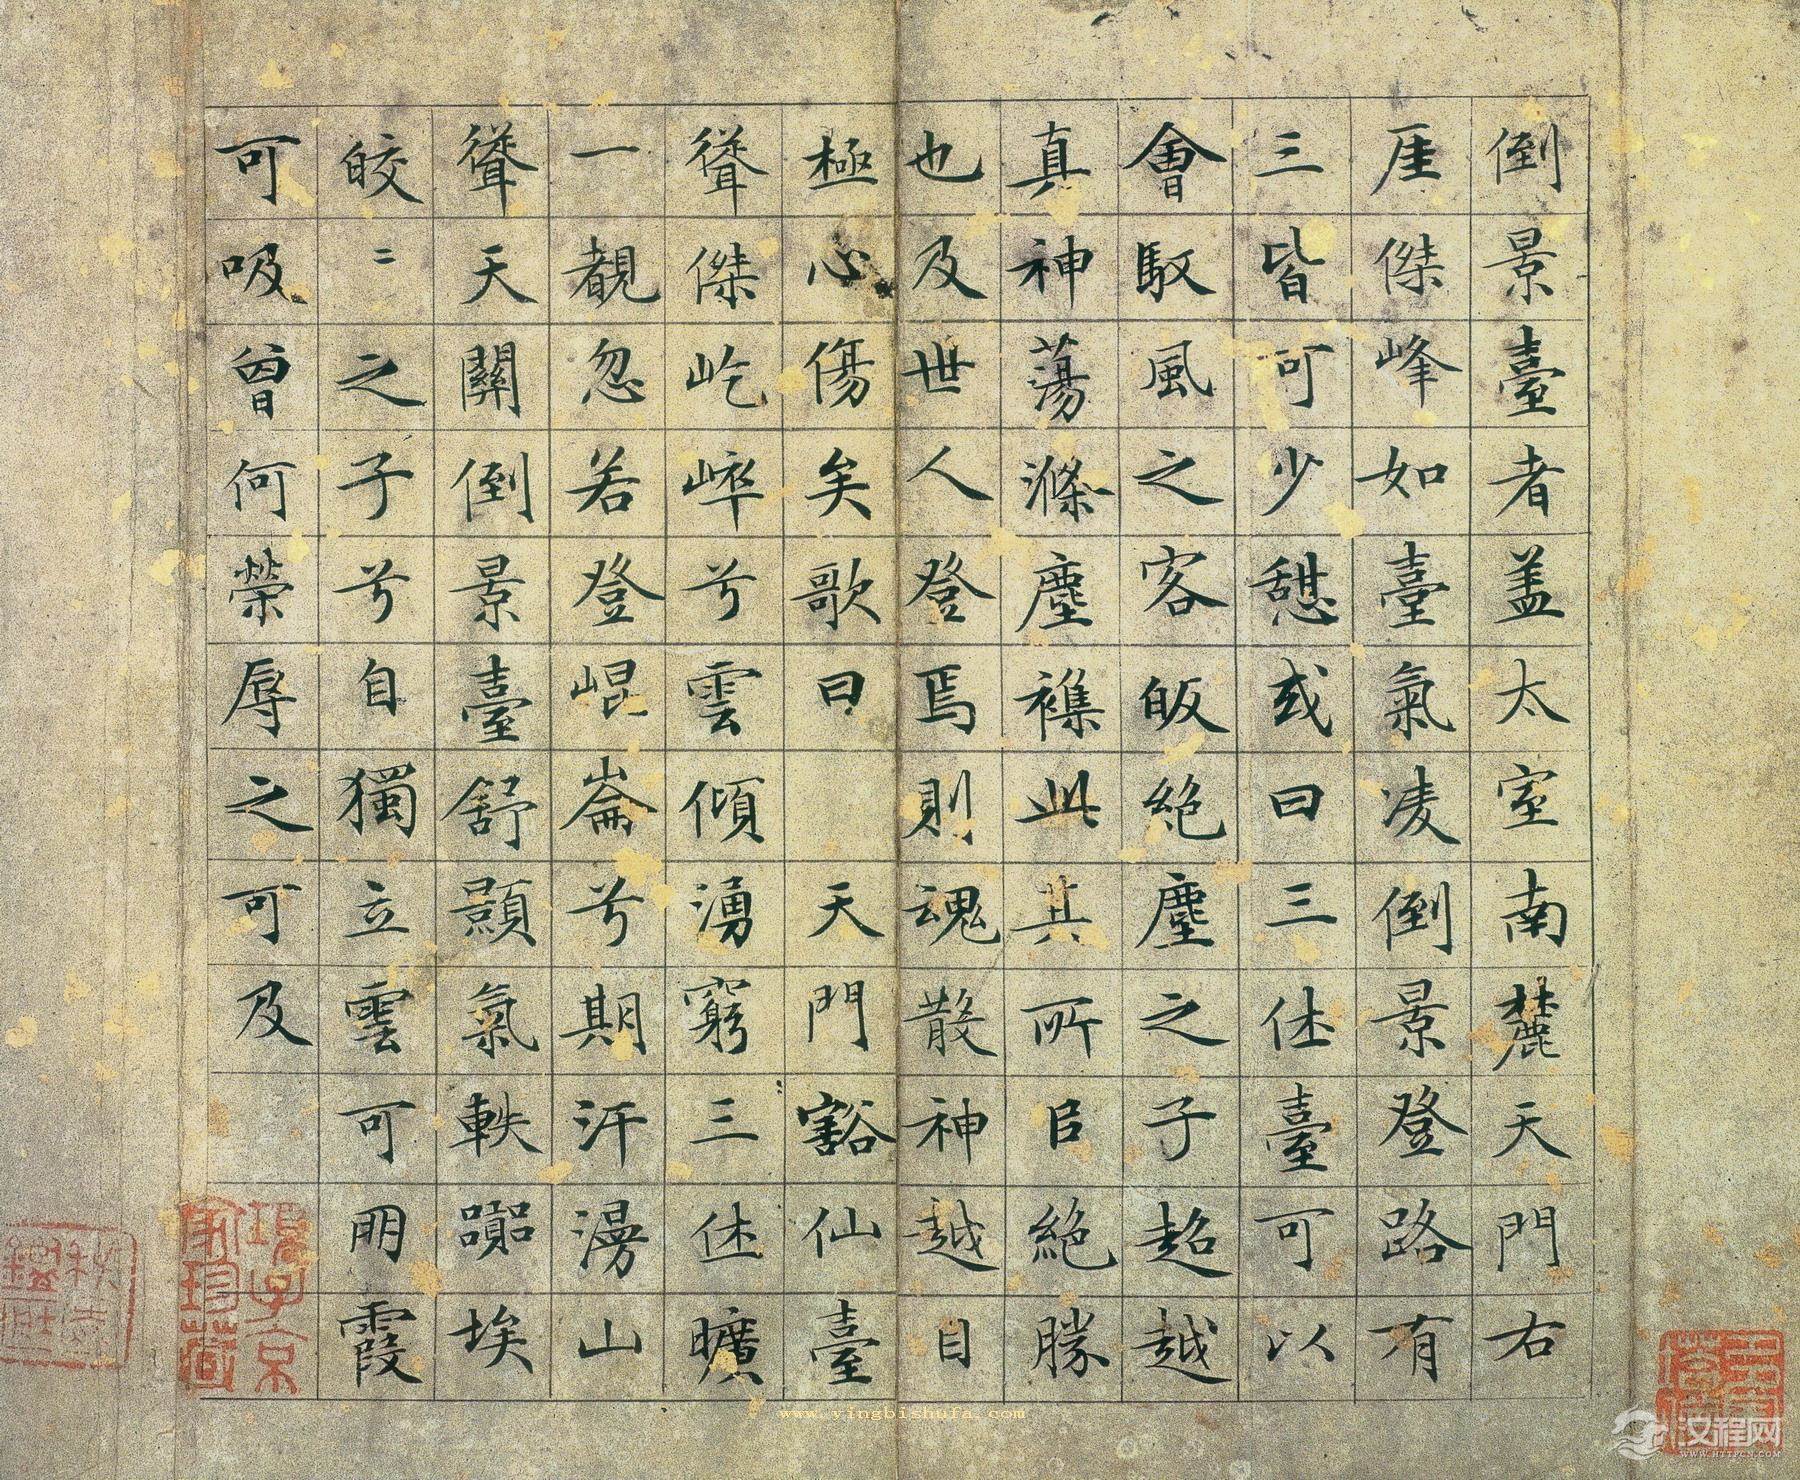 倒景臺者盖太室南麓天門右
厓傑峰如臺氣凌倒景登路有
三皆可少憩或曰三休臺可以
會馭風之客皈絶塵之子超越
真神蕩滌塵襍此其所㠯絶勝
也及世人登焉則魂散神越目
極心傷矣歌曰 天門豁仙臺
聳傑屹崒兮雲傾湧窮三休曠
一覩忽若登崐崙兮期汗漫山
聳天關倒景臺舒顥氣軼囂埃
皎〻之子兮自獨立雲可朋霞
可吸曾何榮辱之可及
項子京家珍藏
www.yingbishufa.com
汉程网
WWW.HTTPCN.COM